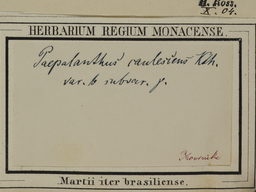 H. Ross.
X. 04.
HERBARIUM REGIUM MONACENSE.
Paepalanthus caulescens Kth.
var. b subvar. γ.
Koernicke
Martii iter brasiliense.